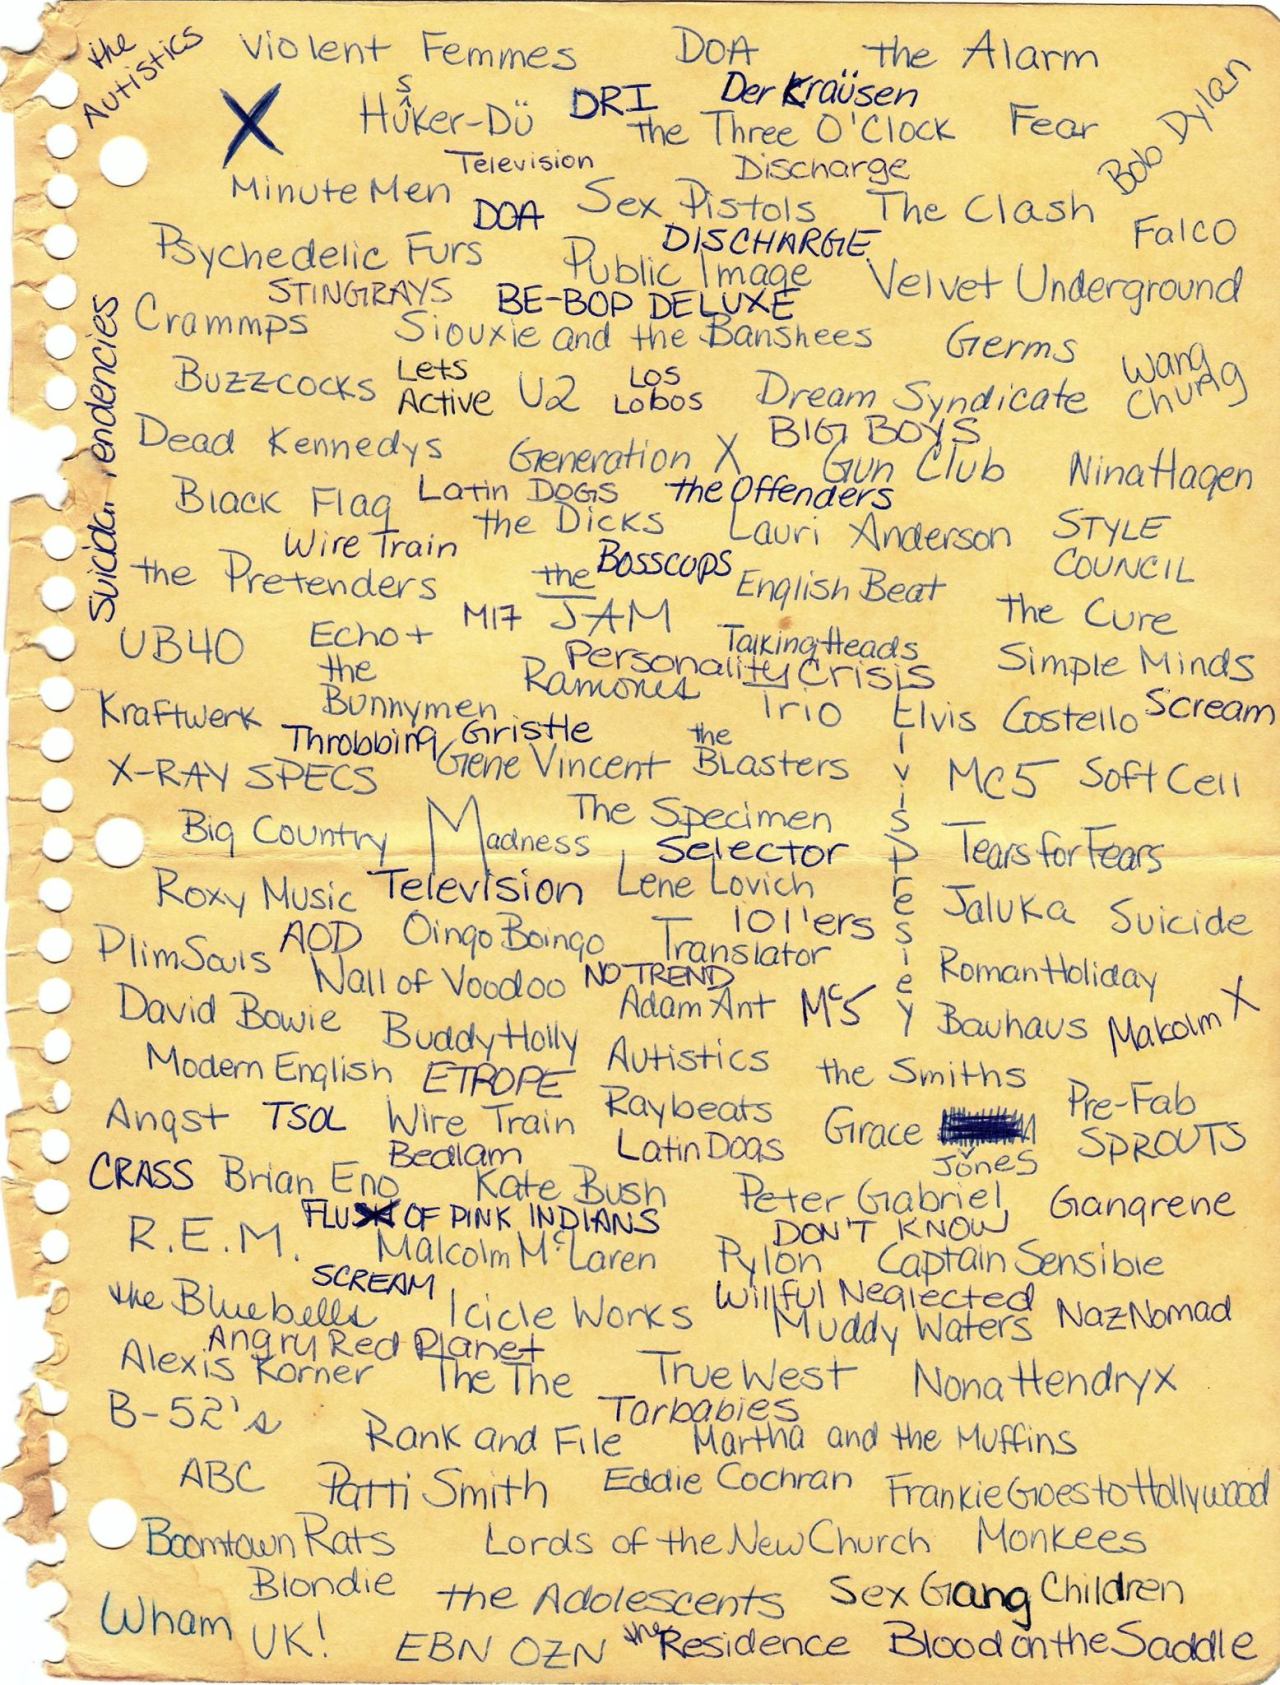 the Autistics
Violent Femmes DOA the Alarm
Bob Dylan
X Hüsker-Dü DRI Der Kraüsen
the Three O'Clock Fear
Television Discharge
Minute Men DOA Sex Pistols The Clash
Falco
Psychedelic Furs Public Image DISCHARGE
Velvet Underground
STINGRAYS BE-BOP DELUXE
Crammps Siouxie and the Banshees Germs
Wang Chung
Buzzcocks Lets Active U2 Los Lobos Dream Syndicate
Suicidal Tendencies
Dead Kennedys Generation X BIG BOYS
Gun Club Nina Hagen
Black Flag Latin DOGS the Offenders
the Dicks Lauri Anderson STYLE COUNCIL
Wire Train Bosscops
the Pretenders the JAM English Beat
M17 the Cure
UB40 Echo + the Bunnymen Talking Heads
Personality Crisis Simple Minds
Ramones Trio Elvis Costello Scream
Kraftwerk Throbbing Gristle
Elvis Presley
X-RAY SPECS Gene Vincent the Blasters MC5 Soft Cell
Big Country Madness The Specimen
Selector Tears for Fears
Roxy Music Television Lene Lovich
Jaluka Suicide
PlimSouls AOD Oingo Boingo Translator 101'ers
Wall of Voodoo NO TREND Roman Holiday
David Bowie Buddy Holly Adam Ant Mc5 Bauhaus Malcolm X
Modern English ETROPE Autistics the Smiths
Angst TSOL Wire Train Raybeats Grace Jones
Pre-Fab SPROUTS
Bedlam Latin Dogs
CRASS Brian Eno Kate Bush Peter Gabriel Gangrene
FLUX OF PINK INDIANS DON'T KNOW
R.E.M. Malcolm McLaren Pylon Captain Sensible
SCREAM
the Bluebells Icicle Works Willful Neglected
Muddy Waters Naz Nomad
Angry Red Planet
Alexis Korner The The True West Nona Hendryx
B-52's Tarbabies
Rank and File Martha and the Muffins
ABC Patti Smith Eddie Cochran Frankie Goes to Hollywood
Boomtown Rats Lords of the New Church Monkees
Blondie the Adolescents Sex Gang Children
Wham UK! EBN OZN the Residence Blood on the Saddle